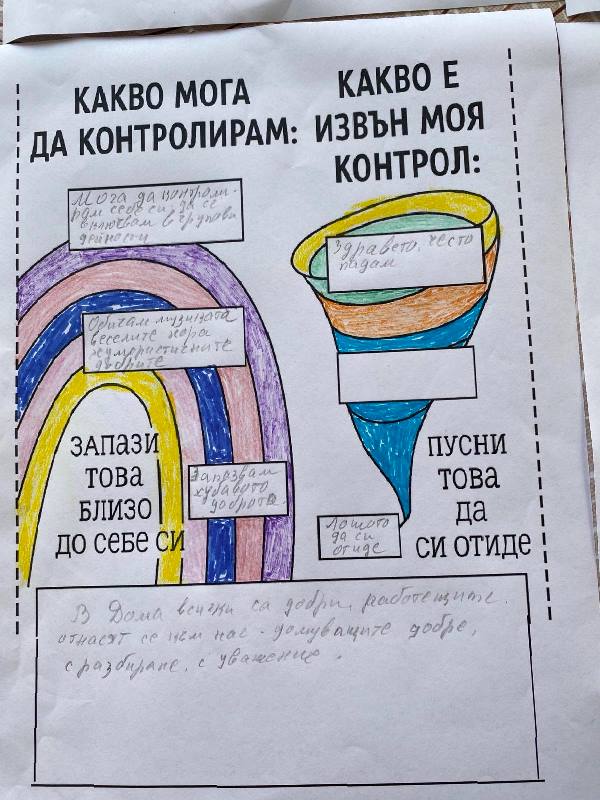 КАКВО МОГА
ДА КОНТРОЛИРАМ:
Мога да контроли-
рам себе си, да се
включвам в групови
дейности
Обичам музиката
веселите хора
хумористичните
добрите
Запазвам
хубавото
доброто.
ЗАПАЗИ
ТОВА
БЛИЗО
ДО СЕБЕ СИ
КАКВО Е
ИЗВЪН МОЯ
КОНТРОЛ:
Здравето, често
падам
Лошото
да си
отиде
ПУСНИ
ТОВА
ДА
СИ ОТИДЕ
В Дома всички са добри, работещите
отнасят се към нас - домуващите добре,
с разбиране, с уважение.